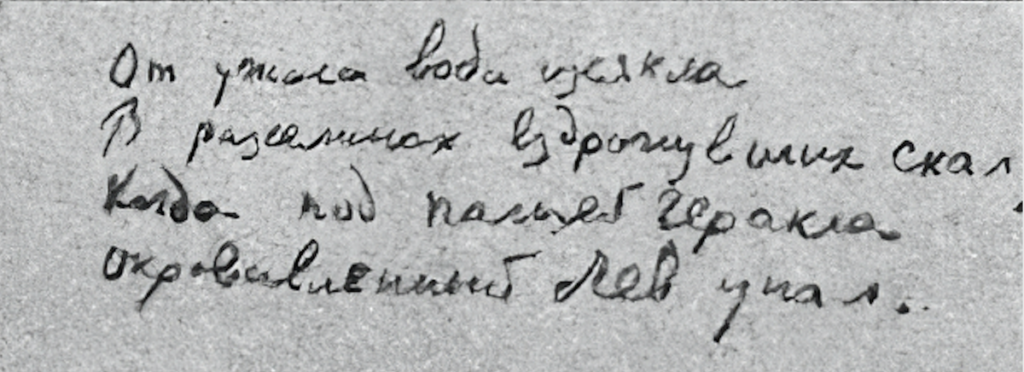 От ужаса вода иссякла
В расселинах вздрогнувших скал
Когда под палицей Геракла
Окровавленный Лев упал..